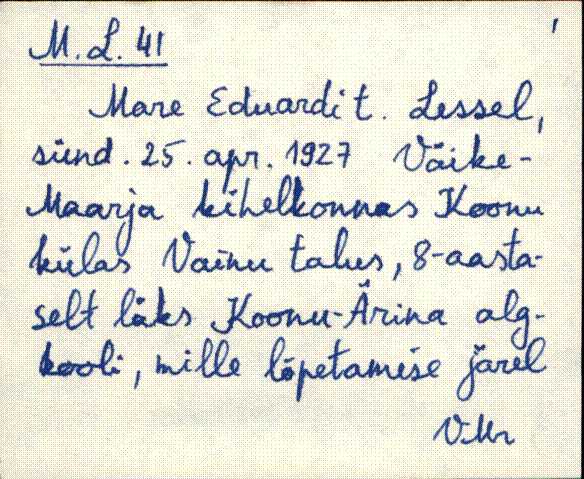 M. L. 41
Mare Eduardi t. Lessel,
sünd. 25. apr. 1927 Väike-
Maarja kihelkonnas Koonu
külas Vainu talus, 8-aasta-
selt läks Koonu-Ärina alg-
kooli, mille lõpetamise järel